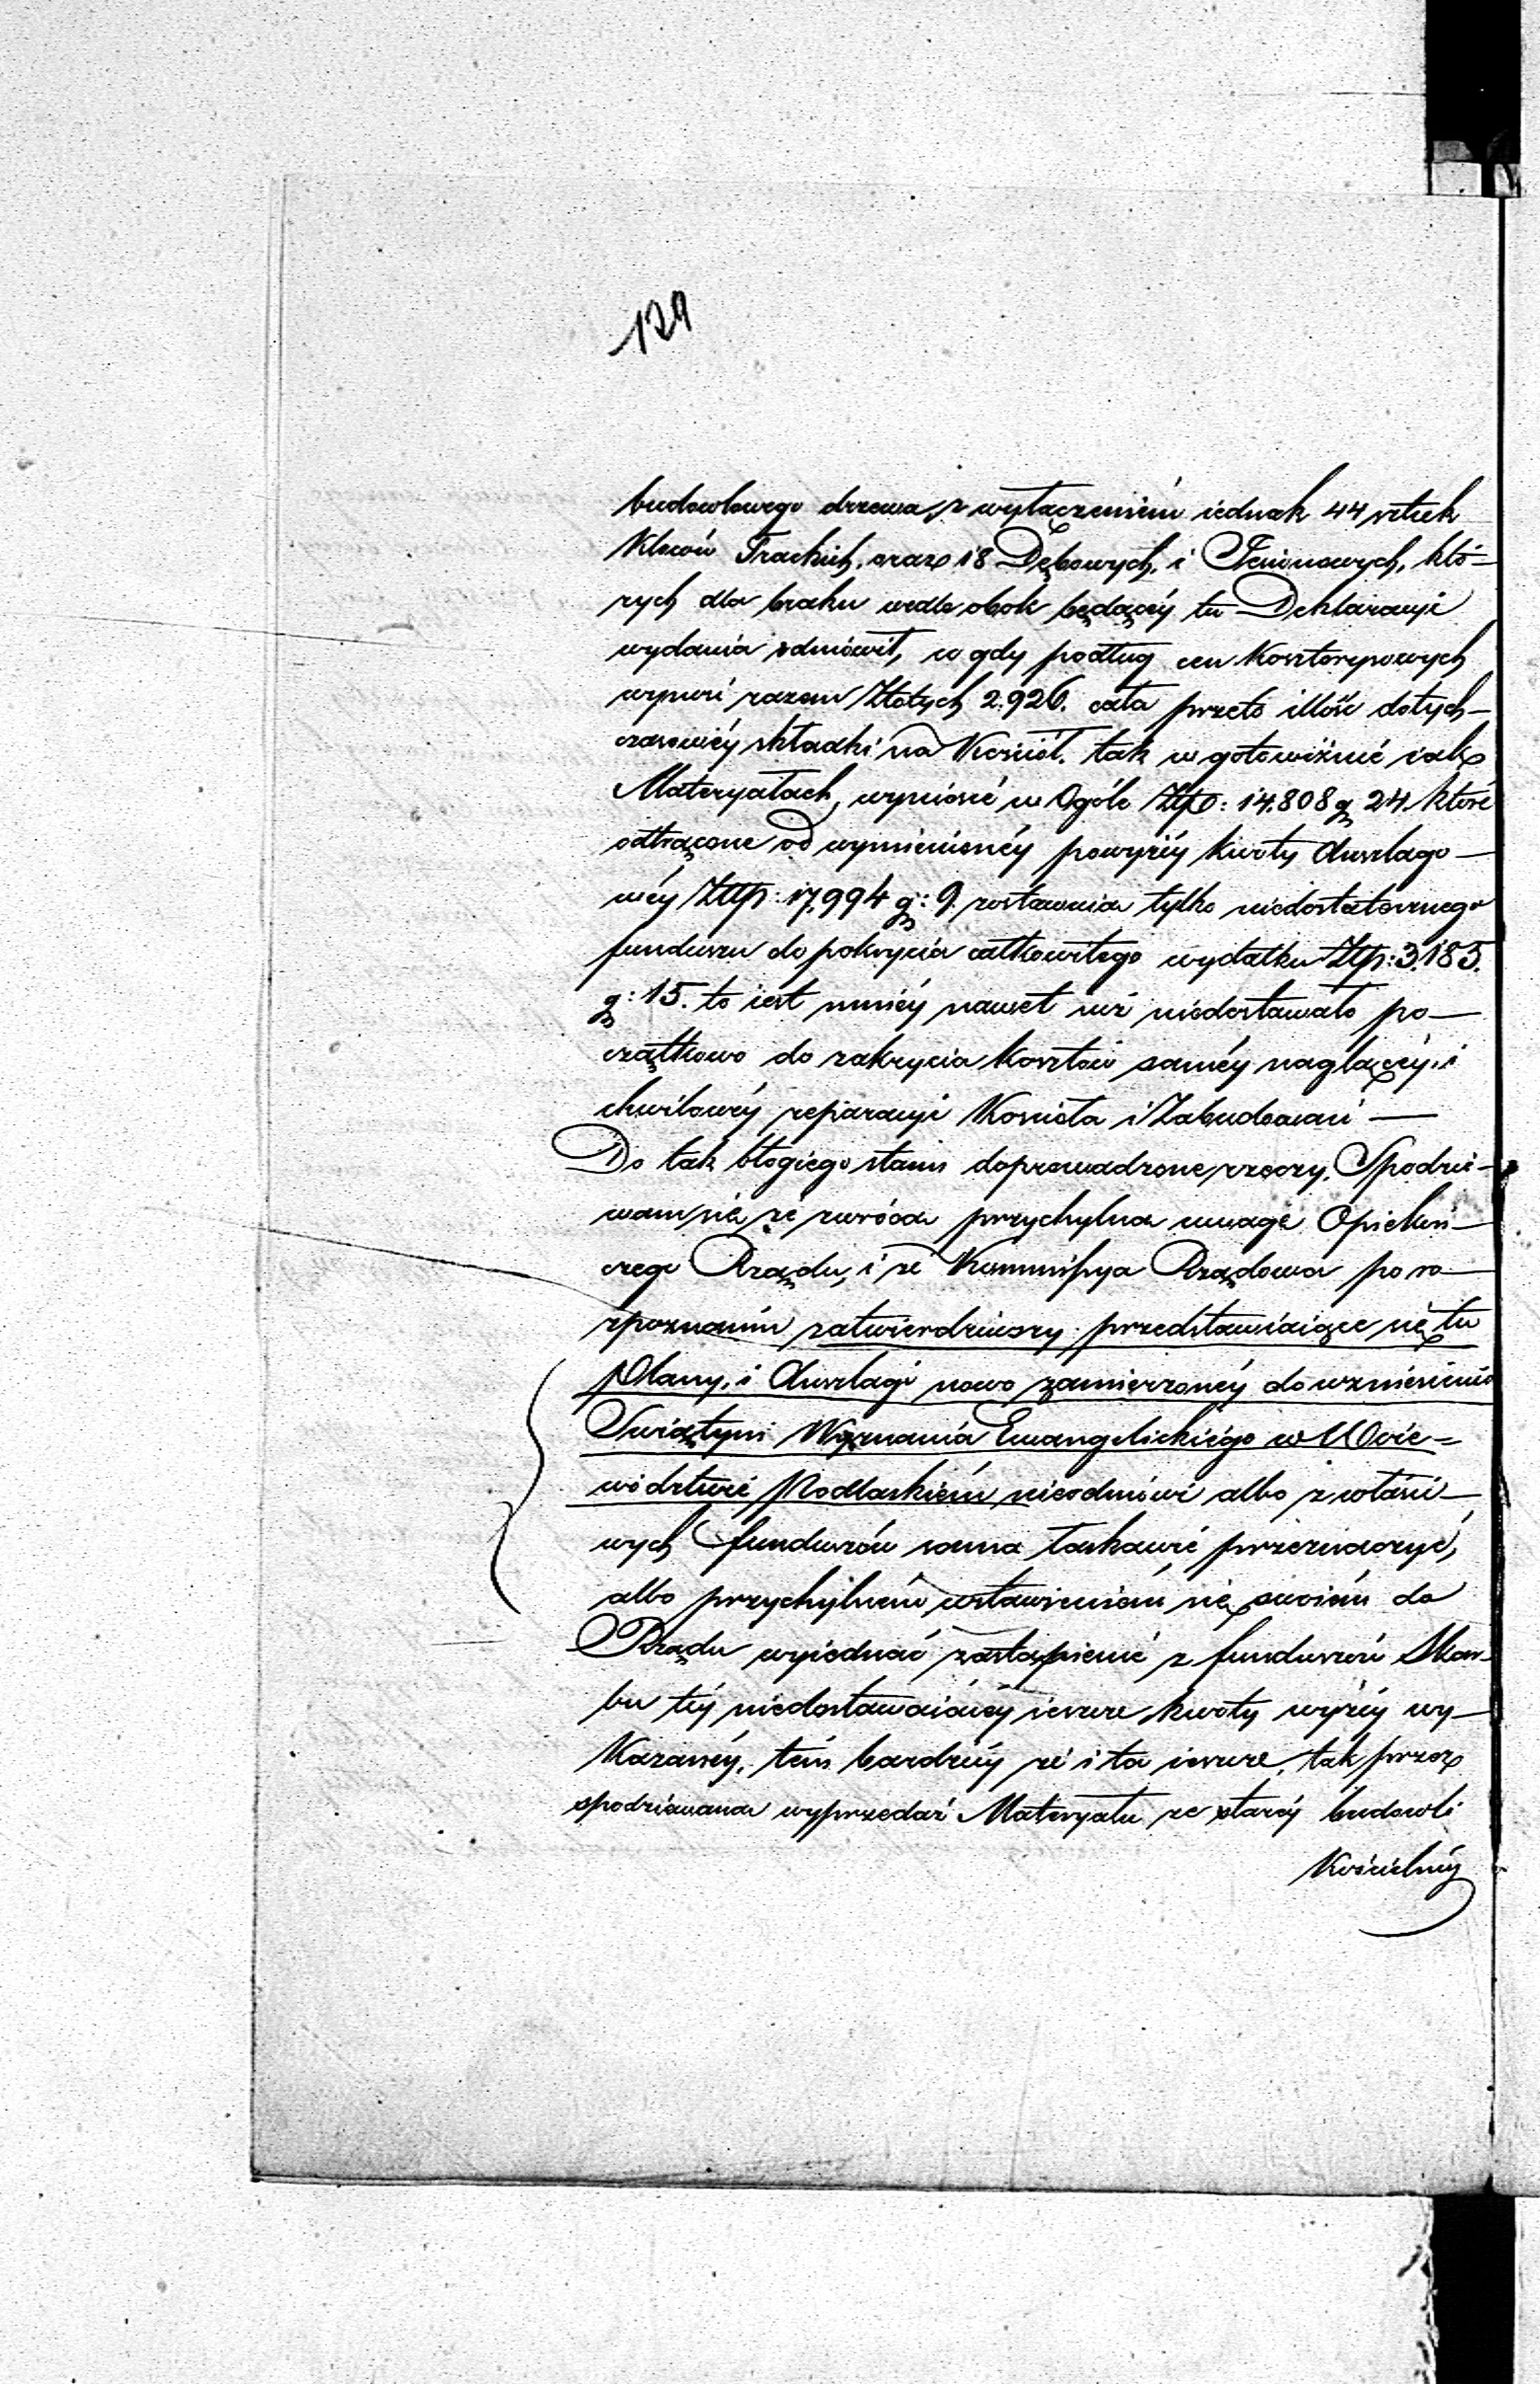 129
budowlowego drzewa, z wyłączeniem iednak 44 sztuk
Klocow Trackich, oraz 18 Dębowych, i Jesionowych, któ-
rych dla braku wedle obok będącéy tu Deklaracyi
wydania odmówił, co gdy podług cen Kosztorysowych
wynosi razem Złotych 2.926. cała przeto illość dotych-
czasowéy składki na Kościół, tak w gotowiźnie iak
Materyałach, wyniosie w Ogóle Złp: 14.808 g 24. które
odtrącone od wymienionéy powyżéy kwoty Anszlago-
wéy Złłp: 17.994 g: 9. zostawuia tylko niedostatecznego
funduszu do pokrycia całkowitego wydatku Złp: 3.185.
g: 15. to iest mniéy nawet niż niedostawało po-
czątkowo do zakrycia kosztów saméy naglącéy, i
chwilowéy reparacyi Kościoła i Zabudowań —
Do tak błogiego stanu doprowadzone rzeczy, Spodzie-
wam się że zwróca przychylna uwagę Opiekuń-
czego Rządu, i że Kommissya Rządowa po ro-
zpoznaniu zatwierdziwszy przedstawiaiące się tu
Plany, i Anszlagi nowo zamierzonéy do wzniesienia
Swiątyni Wyznania Ewangelickiego w Woie-
wództwie Podlaskiém nieodmówi albo z właści-
wych funduszów sama łaskawie przeznaczyć,
albo przychylném wstawieniem się swoiém do
Rządu wyiednać zastąpienie z funduszów Skar-
bu téy niedostawaiącéy ieszcze kwoty wyżéy wy-
Kazanéy, tém bardziéy że i ta ieszcze, tak przez
spodziewana wyprzedaż Materyału ze staréy budowli
Kościelnéy